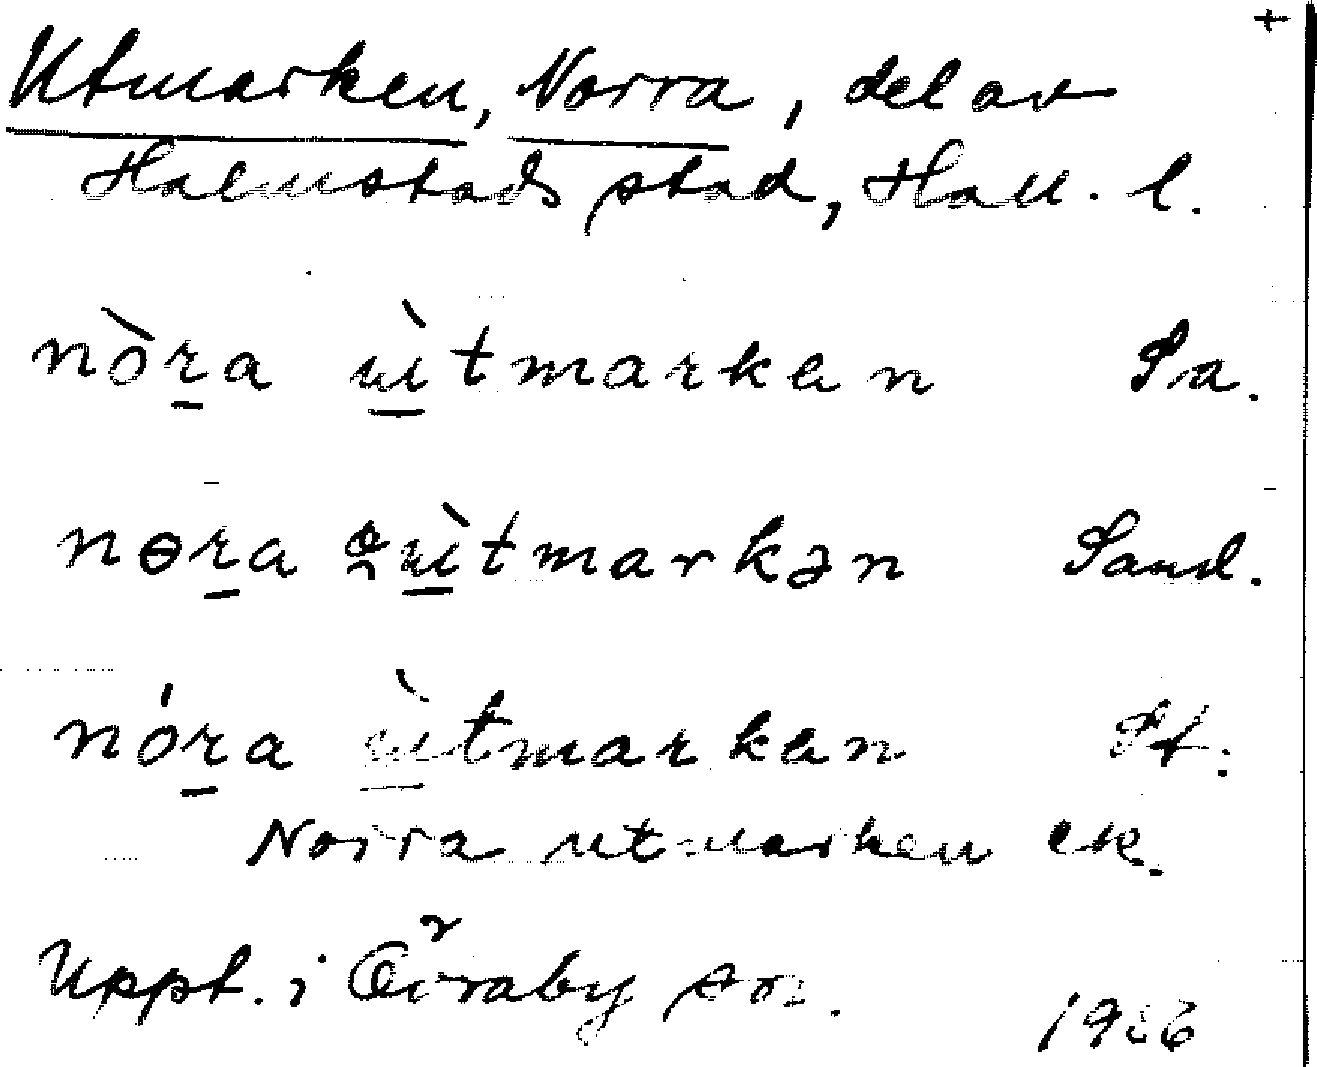 +
Utmarken, Norra, del av
Halmstads stad, Hall. l.
nòra ùtmarkan Sa.
nɵra ùtmarkən Sand.
nóra ùtmarkan St.
Norra utmarken ek.
Uppt. i Övraby sn.